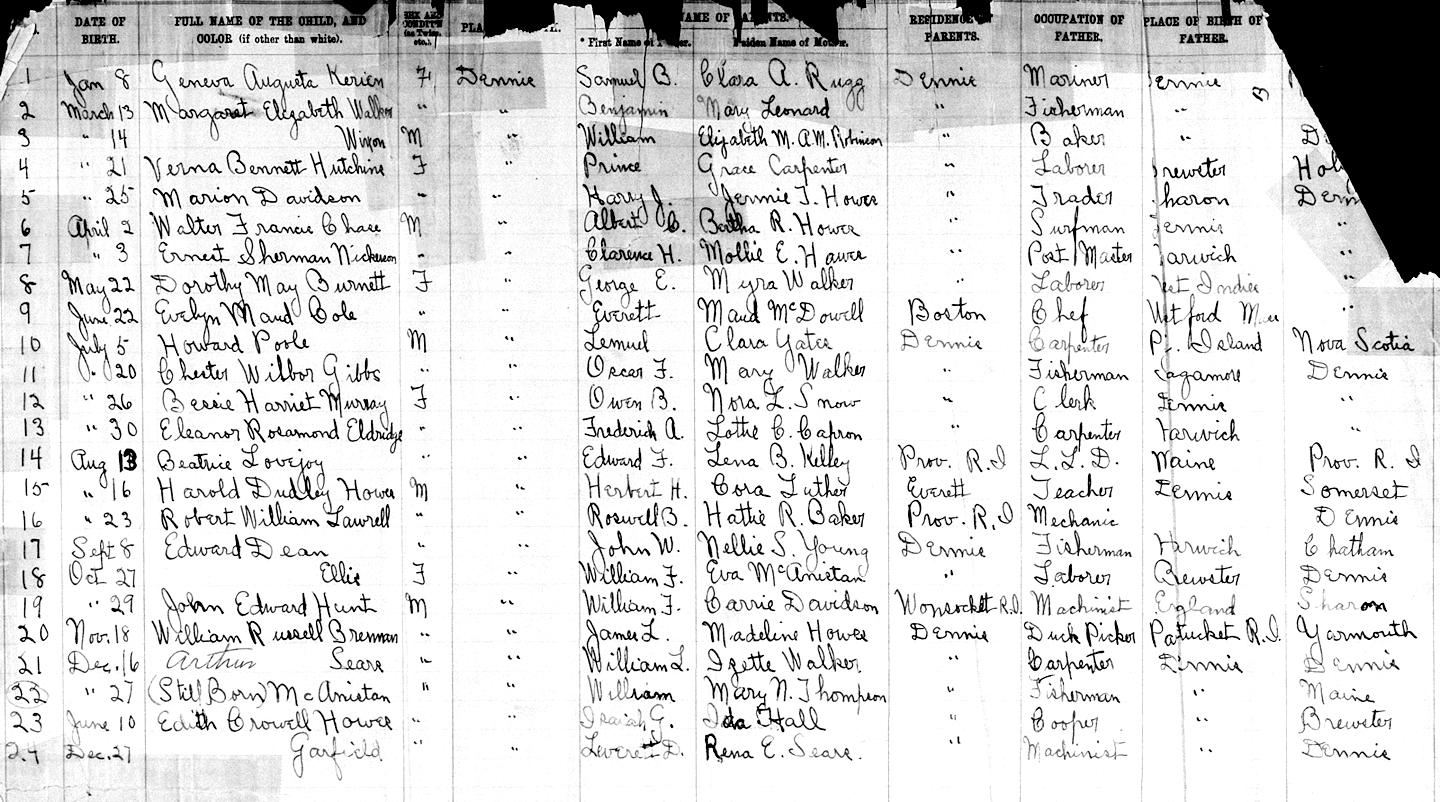 DATE OF BIRTH. FULL NAME OF THE CHILD, AND COLOR (if other than white). SEX AND CONDIT'N (as Twins, etc.) NAME OF PARENTS. RESIDENCE OF PARENTS. OCCUPATION OF FATHER. PLACE OF BIRTH OF FATHER.
* First Name of Maiden Name of Mother.
1 Jan 8 Geneva Augusta Kerien F Dennis Samuel B. Clara A. Rugg Dennis Mariner ennis
2 March 13 Margaret Elizabeth Walker " " Benjamin Mary Leonard " Fisherman "
3 " 14 Wixon M " William Elizabeth M. A.M. Robinson " Baker " D
4 " 21 Verna Bennett Hutchins F " Prince Grace Carpenter " Laborer rewster Hol
5 " 25 Marion Davidson " " Harry J. Jennie F. Howes " Trader haron Denn
6 April 2 Walter Francis Chase M " Albert C. Bertha R. Howes " Surfman ennis "
7 " 3 Ernest Sherman Nickerson " " Clarence H. Mollie E. Hawes " Post Master arwich "
8 May 22 Dorothy May Burnett F " George E. Myra Walker " Laborer est Indies "
9 June 22 Evelyn Maud Cole " " Everett Maud McDowell Boston Chef "
10 July 5 Howard Poole M " Lemuel Clara Yates Dennis Carpenter Island Nova Scotia
11 J. 20 Chester Wilbor Gibbs " " Oscar F. Mary Walker " Fisherman Sagamore Dennis
12 " 26 Bessie Harriet Murray F " Owen B. Nora L. Snow " Clerk Dennis "
13 " 30 Eleanor Rosamond Eldridge " " Frederich A. Lottie C. Capron " Carpenter Harwich "
14 Aug 13 Beatrice Lovejoy " " Edward F. Lena B. Kelley Prov. R.I L.L.D. Maine Prov. R. I
15 " 16 Harold Dudley Howes M " Herbert H. Cora Luther Everett Teacher Dennis Somerset
16 " 23 Robert William Lawrell " " Roswell B. Hattie R. Baker Prov. R.I Mechanic Dennis
17 Sept 8 Edward Dean " " John W. Nellie S. Young Dennis Fisherman Harwich Chatham
18 Oct 27 Ellis F " William F. Eva McAnistan " Laborer Brewster Dennis
19 " 29 John Edward Hunt M " William F. Carrie Davidson Wonsocket R.I. Machinist England Sharon
20 Nov. 18 William Russell Brennan " " James L. Madeline Howes Dennis Duck Picker Patucket R.I. Yarmouth
21 Dec. 16 Arthur Sears " " William L. Izette Walker " Carpenter Dennis Dennis
22 " 27 (Still Born) McAnistan " " William Mary N. Thompson " Fisherman " Maine
23 June 10 Edith Crowell Howes " " Isaiah G. Ida Hall " Cooper " Brewster
24 Dec. 27 Garfield " " Leverett D. Rena E. Sears. " Machinist " Dennis